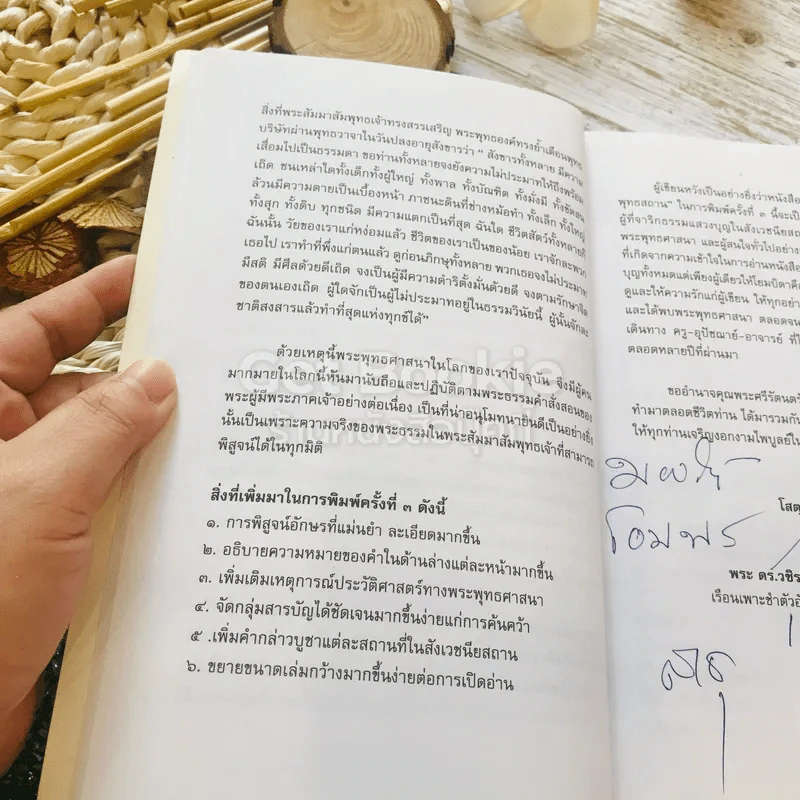 สิ่งที่พระสัมมาสัมพุทธเจ้าทรงสรรเสริญ พระพุทธองค์ทรงย้ำเตือนพุทธ
บริษัทผ่านพุทธวาจาในวันปลงอายุสังขารว่า " สังขารทั้งหลาย มีความ
เสื่อมไปเป็นธรรมดา ขอท่านทั้งหลายจงยังความไม่ประมาทให้ถึงพร้อม
เถิด ชนเหล่าใดทั้งเด็กทั้งผู้ใหญ่ ทั้งพาล ทั้งบัณฑิต ทั้งมั่งมี ทั้งขัดสน
ล้วนมีความตายเป็นเบื้องหน้า ภาชนะดินที่ช่างหม้อทำ ทั้งเล็ก ทั้งใหญ่
ทั้งสุก ทั้งดิบ ทุกชนิด มีความแตกเป็นที่สุด ฉันใด ชีวิตสัตว์ทั้งหลายก็
ฉันนั้น วัยของเราแก่หง่อมแล้ว ชีวิตของเราเป็นของน้อย เราจักละพวก
เธอไป เราทำที่พึ่งแก่ตนแล้ว ดูก่อนภิกษุทั้งหลาย พวกเธอจงไม่ประมาท
มีสติ มีศีลด้วยดีเถิด จงเป็นผู้มีความดำริตั้งมั่นด้วยดี จงตามรักษาจิต
ของตนเองเถิด ผู้ใดจักเป็นผู้ไม่ประมาทอยู่ในธรรมวินัยนี้ ผู้นั้นจักละ
ชาติสงสารแล้วทำที่สุดแห่งทุกข์ได้"
ด้วยเหตุนี้พระพุทธศาสนาในโลกของเราปัจจุบัน จึงมีผู้คน
มากมายในโลกนี้หันมานับถือและปฏิบัติตามพระธรรมคำสั่งสอนของ
พระผู้มีพระภาคเจ้าอย่างต่อเนื่อง เป็นที่น่าอนุโมทนายินดีเป็นอย่างยิ่ง
นั้นเป็นเพราะความจริงของพระธรรมในพระสัมมาสัมพุทธเจ้าที่สามารถ
พิสูจน์ได้ในทุกมิติ
สิ่งที่เพิ่มมาในการพิมพ์ครั้งที่ ๓ ดังนี้
๑. การพิสูจน์อักษรที่แม่นยำ ละเอียดมากขึ้น
๒. อธิบายความหมายของคำในด้านล่างแต่ละหน้ามากขึ้น
๓. เพิ่มเติมเหตุการณ์ประวัติศาสตร์ทางพระพุทธศาสนา
๔. จัดกลุ่มสารบัญได้ชัดเจนมากขึ้นง่ายแก่การค้นคว้า
๕ .เพิ่มคำกล่าวบูชาแต่ละสถานที่ในสังเวชนียสถาน
๖. ขยายขนาดเล่มกว้างมากขึ้นง่ายต่อการเปิดอ่าน
ผู้เขียนหวังเป็นอย่างยิ่งว่าหนังสือ
พุทธสถาน" ในการพิมพ์ครั้งที่ ๓ นี้จะเป็น
ผู้ที่จาริกธรรมแสวงบุญในสังเวชนียส
พระพุทธศาสนา และผู้สนใจทั่วไปอย่าง
ที่เกิดจากความเข้าใจในการอ่านหนังสือ
บุญทั้งหมดแต่เพียงผู้เดียวให้โยมบิดา
ดูและให้ความรักแก่ผู้เขียน ให้ทุกอย่าง
และได้พบพระพุทธศาสนา ตลอดจน
เดินทาง ครู-อุปัชฌาย์-อาจารย์ ที่
ตลอดหลายปีที่ผ่านมา
ขออำนาจคุณพระศรีรัตนตรั
ทำมาตลอดชีวิตท่าน ได้มารวมกัน
ให้ทุกท่านเจริญงอกงามไพบูลย์ใน
โสตฺ
พระ ดร.วชิร
เรือนเพาะชำตัวอ
Get Bookie